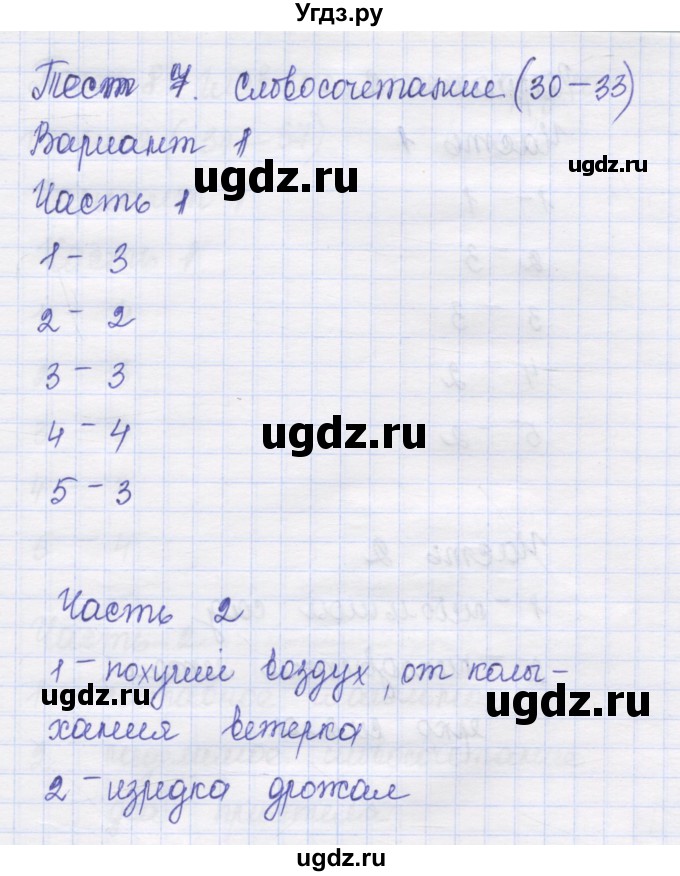 Угдз.ру
Тест 7. Словосочетание (30-33)
Вариант 1
ugdz.ru
ugdz.ru
Часть 1
1 - 3
2 - 2
3 - 3
4 - 4
ugdz.ru
5 - 3
Часть 2
1 - пахучий воздух, от колы-
ugdz.ru
хания ветерка
ugdz.ru
2 - изредка дрожал
ugdz.ru